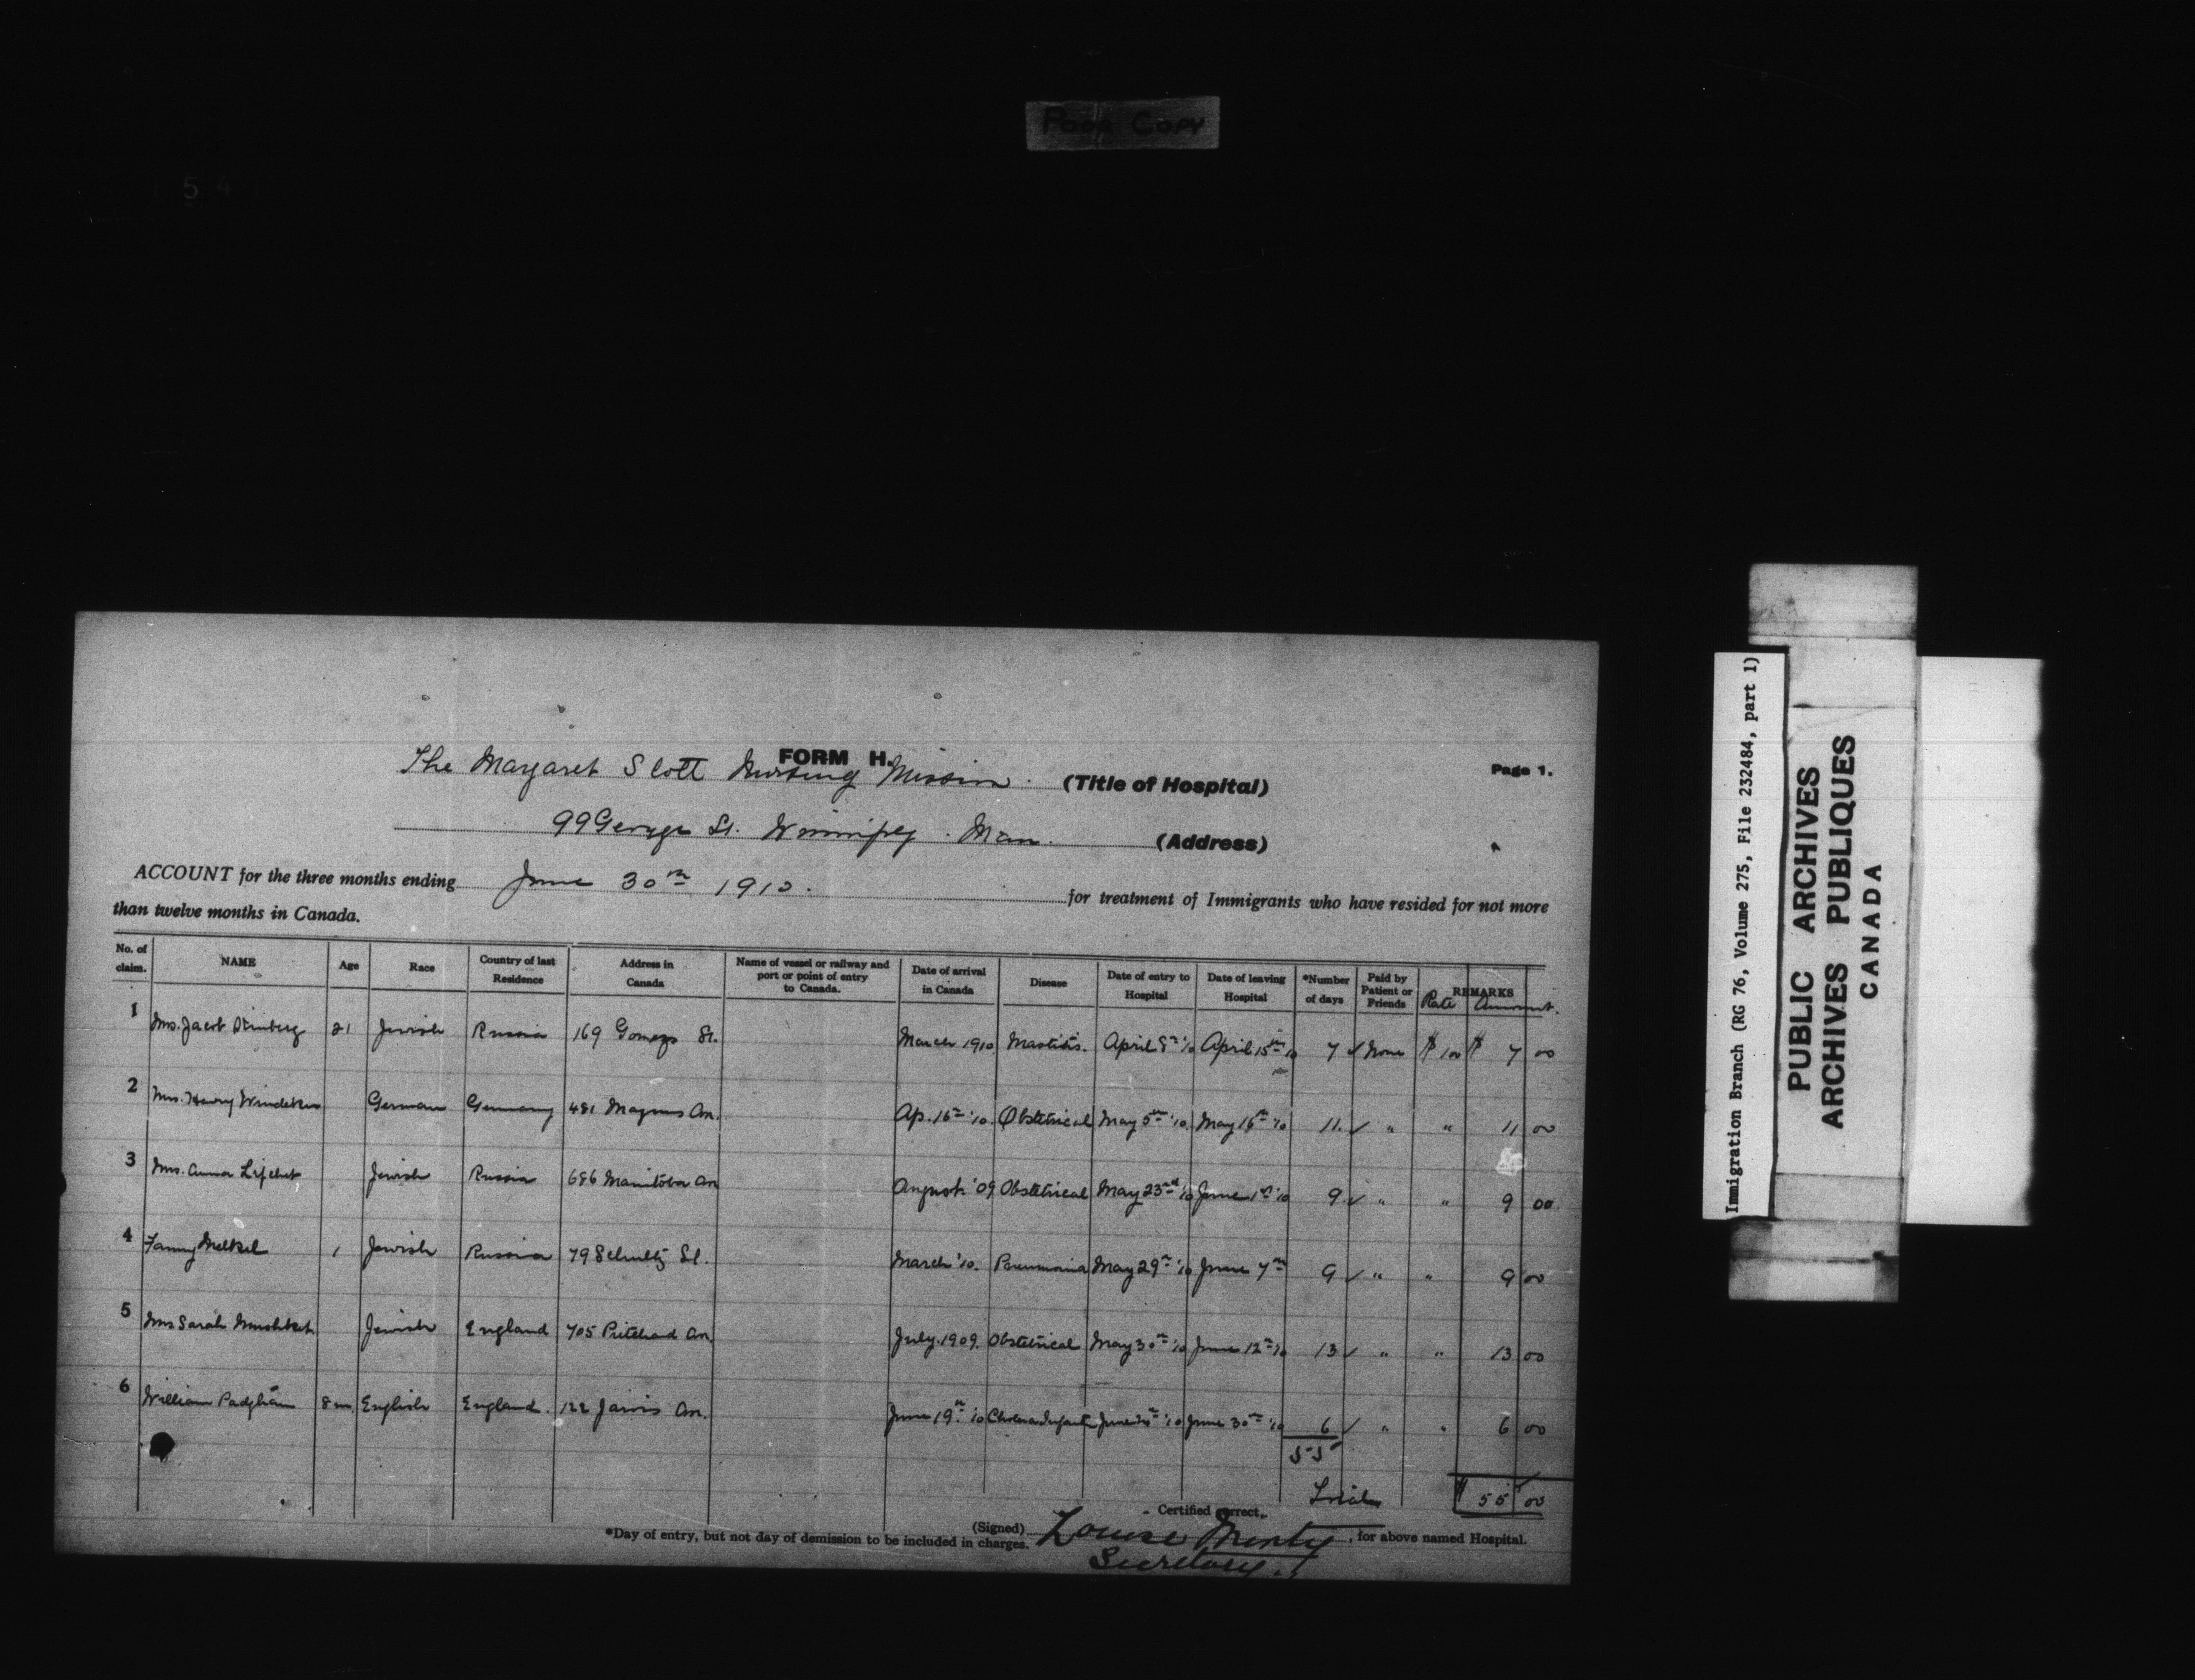 POOR COPY
5 4
FORM H.
The Margaret Scott Nursing Mission. (Title of Hospital)
Page 1.
99 George St. Winnipeg. Man. (Address)
ACCOUNT for the three months ending June 30th 1910. for treatment of Immigrants who have resided for not more
than twelve months in Canada.
No. of claim. NAME Age Race Country of last Residence Address in Canada Name of vessel or railway and port or point of entry to Canada. Date of arrival in Canada Disease Date of entry to Hospital Date of leaving Hospital *Number of days Paid by Patient or Friends REMARKS Rate Amount.
1 Mrs. Jacob Steinberg 21 Jewish Russia 169 St. March 1910 Mastitis. April 8th '10 April 15th 10 7 ✓ None $ 1 00 $ 7 00
2 Mrs. Henry German Germany 481 Magnus Av. Ap. 16th '10. Obstetrical May 5th '10. May 16th '10 11. ✓ " " 11 00
3 Mrs. Anna Jewish Russia 686 Manitoba Av August '09 Obstetrical May 23rd '10 June 1st '10 9 ✓ " " 9 00
4 Fanny 1 Jewish Russia 79 Schultz St. March '10. Pneumonia May 29th '10 June 7th 9 ✓ " " 9 00
5 Mrs Sarah Jewish England 705 Pritchard Av. July. 1909. Obstetrical May 30th '10 June 12th '10 13 ✓ " " 13 00
6 William Padgham 8 m. English England. 122 Jarvis Av. June 19th '10 Cholera Infant June '10 June 30th '10 6 ✓ " " 6 00
55
Total $ 55 00
Certified correct,
(Signed) Louise Minty, for above named Hospital.
*Day of entry, but not day of demission to be included in charges.
Secretary.
Immigration Branch (RG 76, Volume 275, File 232484, part 1)
PUBLIC ARCHIVES
ARCHIVES PUBLIQUES
CANADA